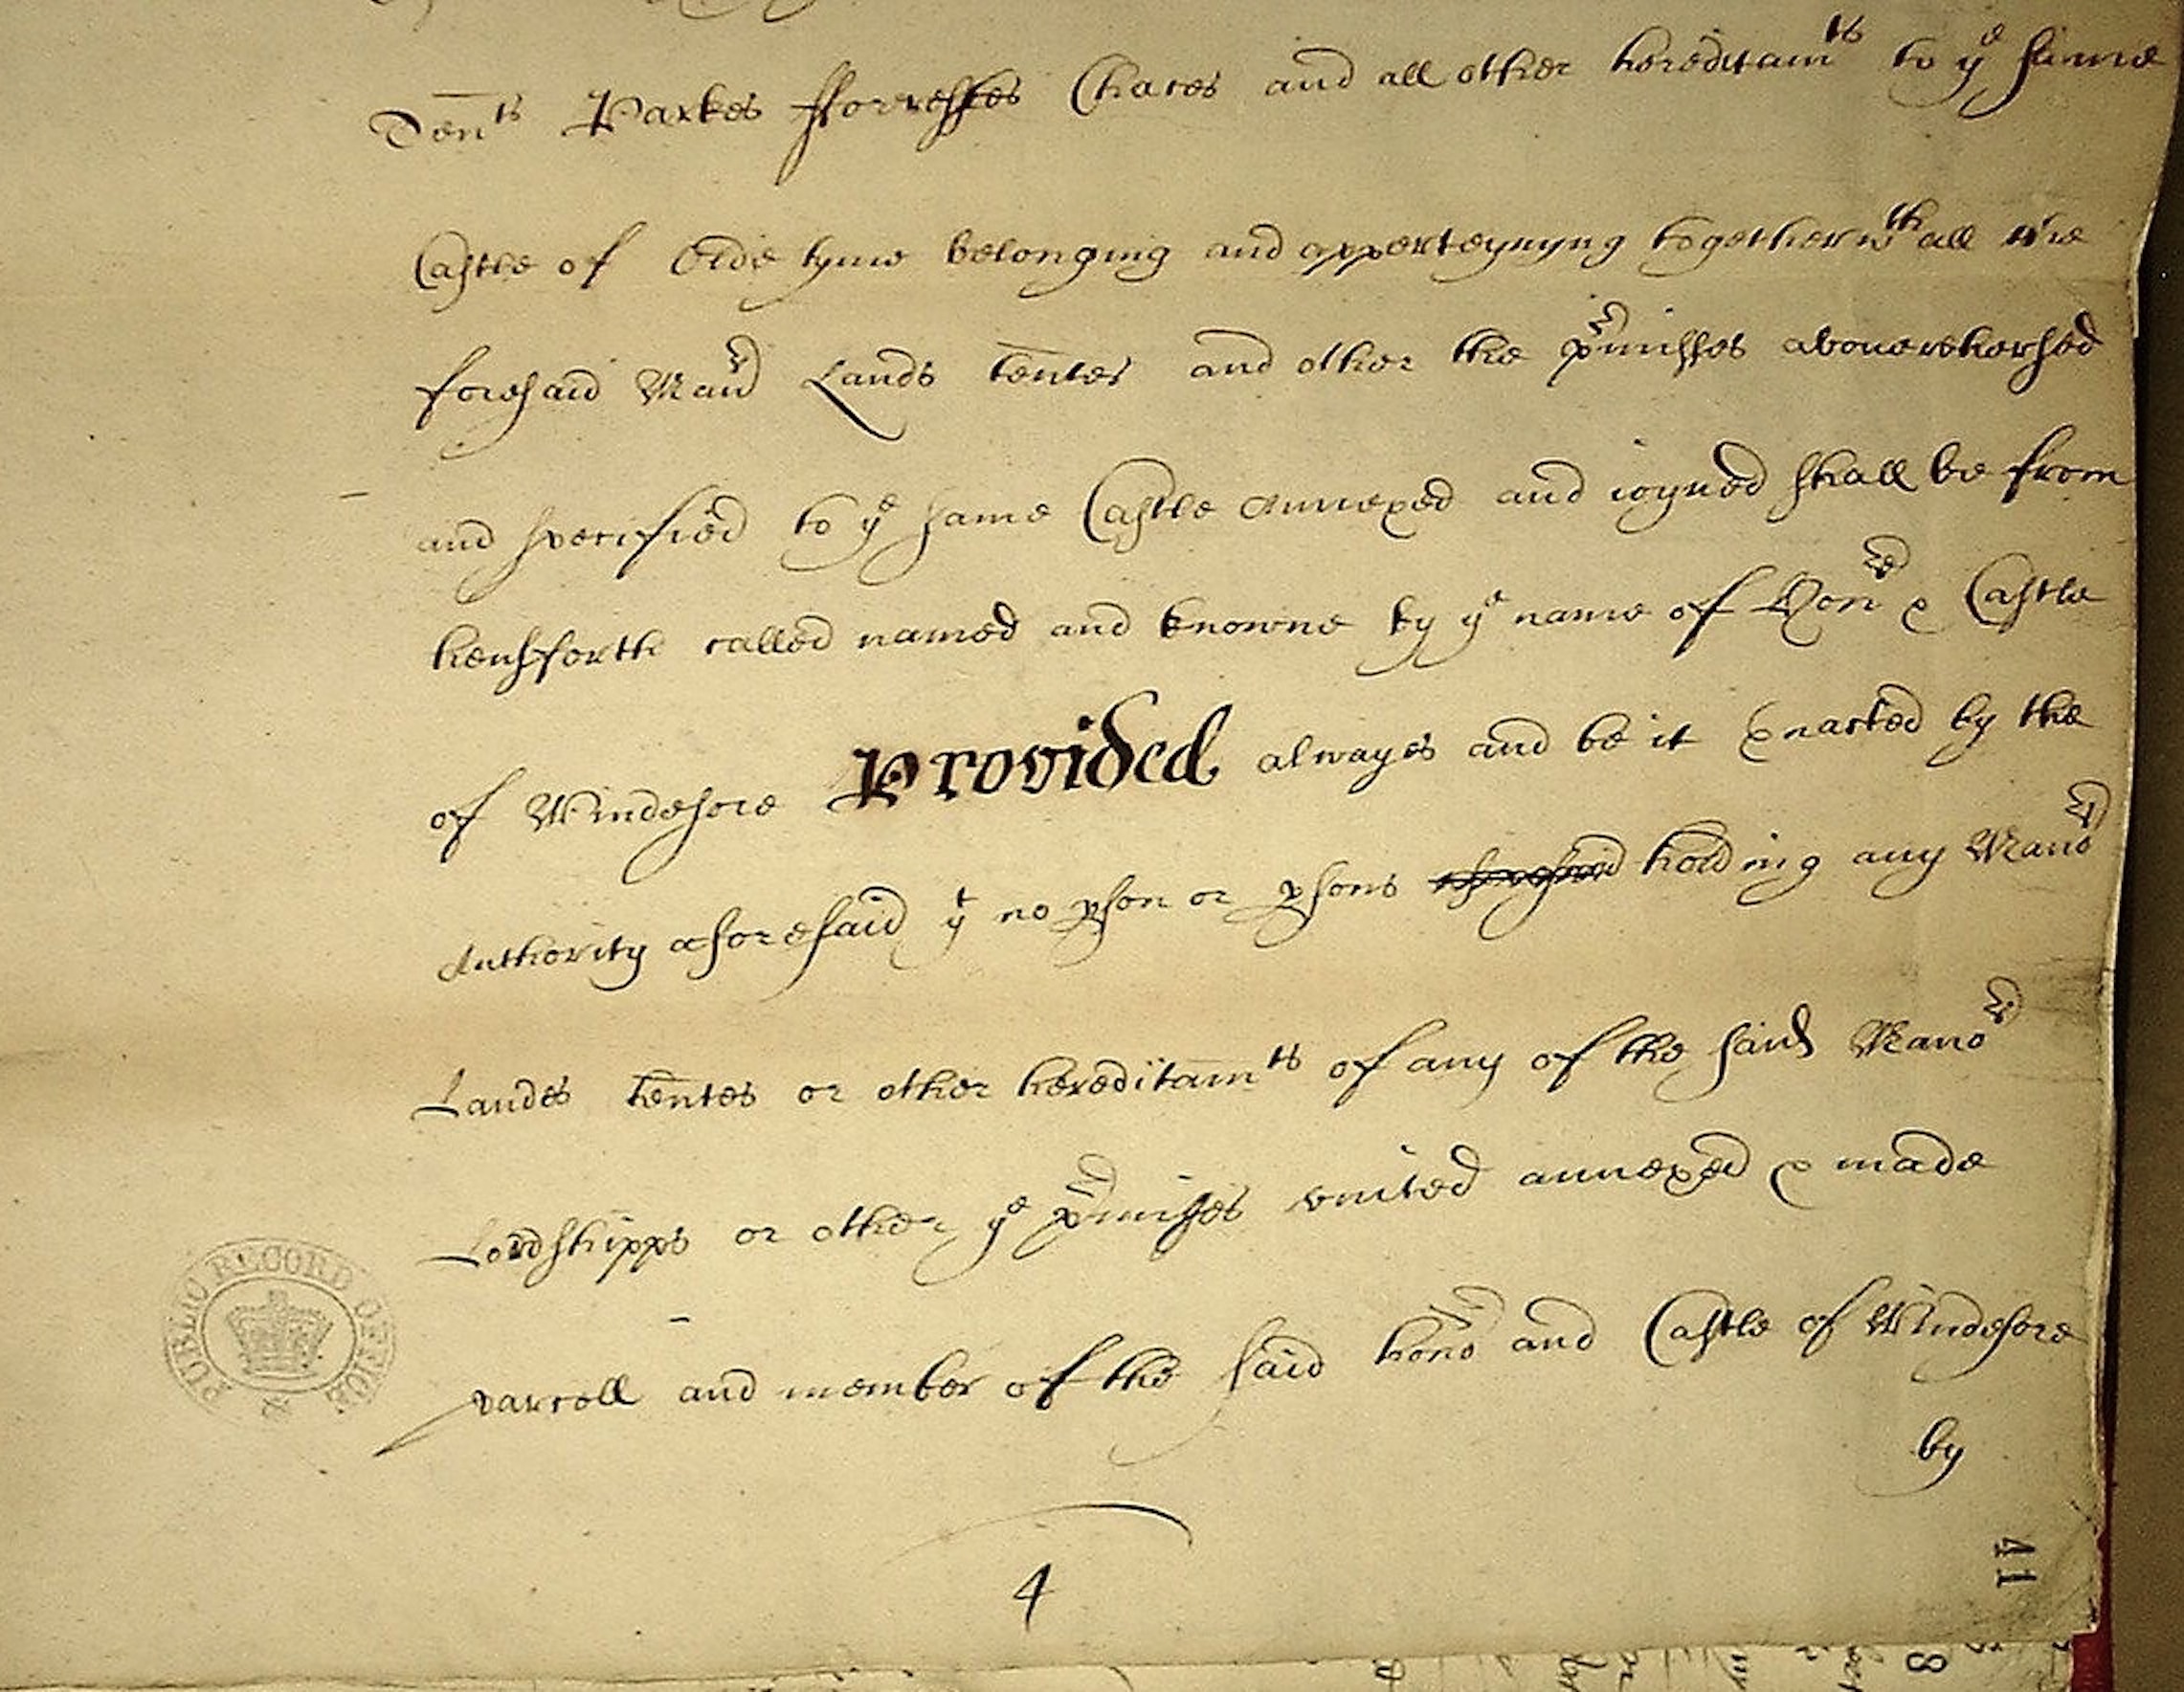 Tents Parkes fforresftes Chaces and all other hereditamts to ye same
Castle of Olde tyme belonging and apperteynyng together wth all the
foresaid Manr Lands tentes and other the pr̃misses aboverehersed
and specified to ye same Castle annexed and ioyned shall be from
hensforth called named and knowne by ye name of Honr & Castle
of Windesore Provided alwayes and be it Enacted by the
Authority aforesaid yt no pson or psons holding any Manors
Landes tentes or other hereditamts of any of the said Manors
Lordshipps or other ye pr̃misses united annexed & made
parcell and member of the said honor and Castle of Windesore
by
4
PUBLIC RECORD OFFICE
41
8